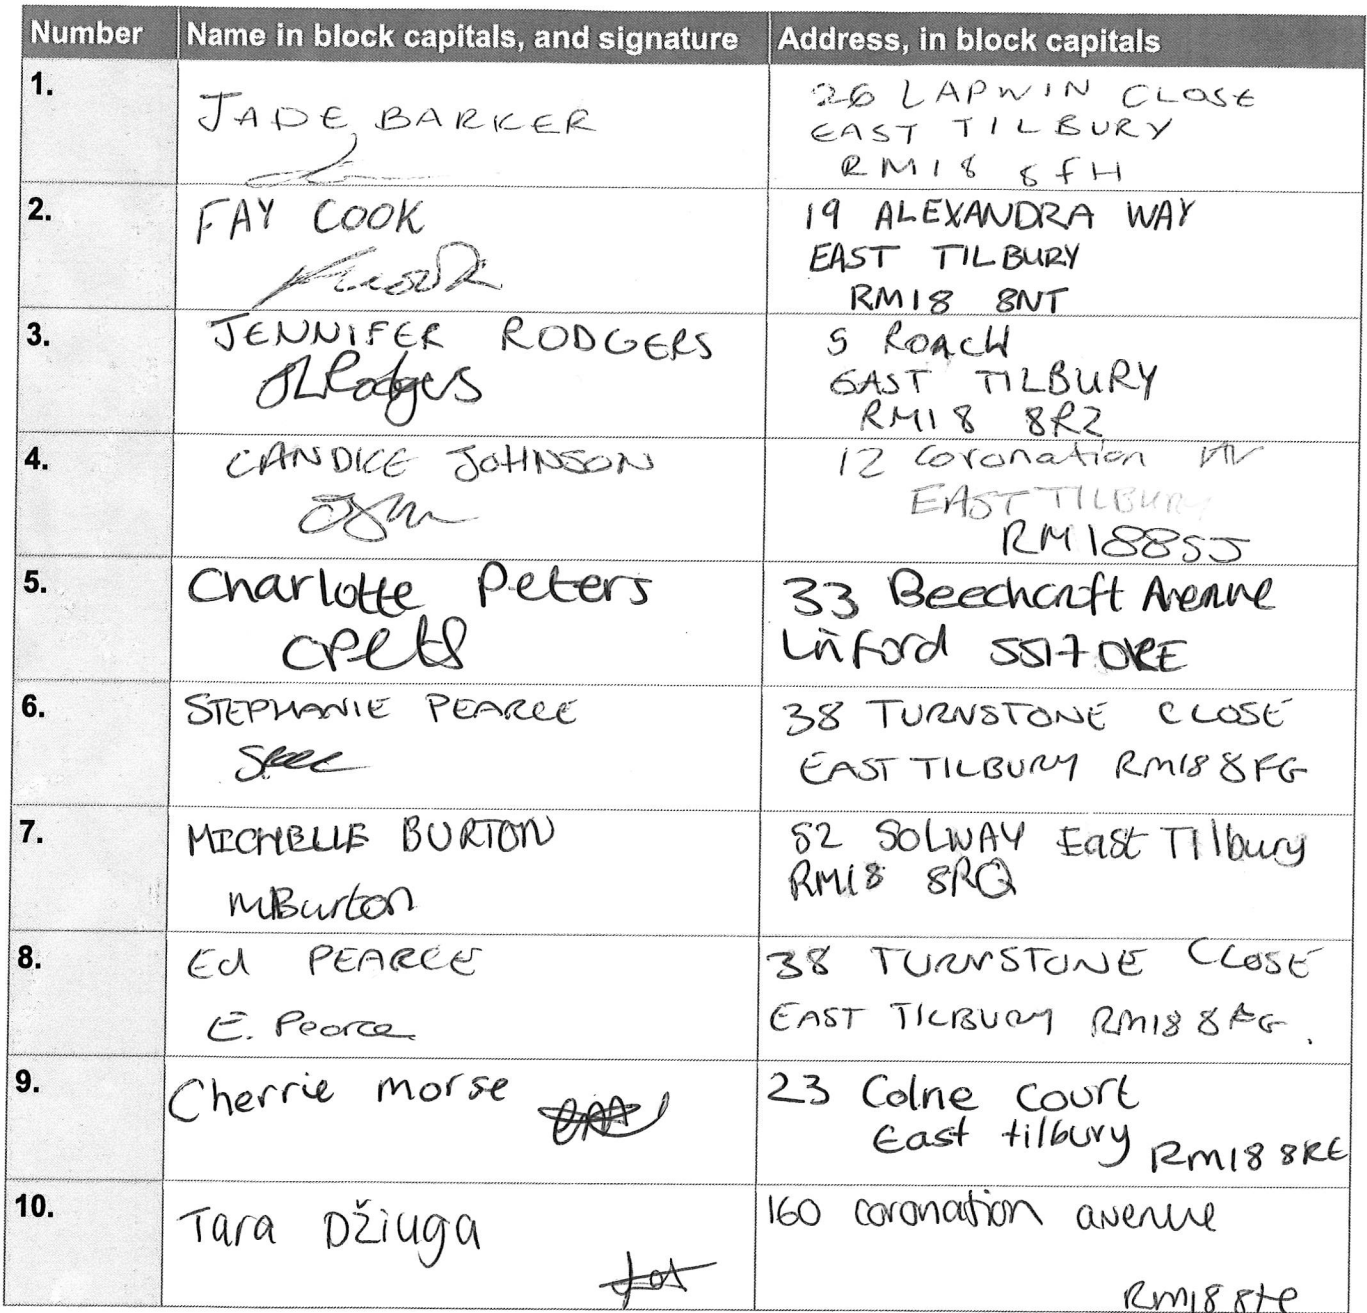 Number Name in block capitals, and signature Address, in block capitals
1.
JADE BARKER
26 LAPWIN CLOSE
EAST TILBURY
RM18 8FH
2.
FAY COOK
19 ALEXANDRA WAY
EAST TILBURY
RM18 8NT
3.
JENNIFER RODGERS
JLRodgers
5 ROACH
EAST TILBURY
RM18 8RZ
4.
CANDICE JOHNSON
12 coronation AV
EAST TILBURY
RM188SJ
5.
Charlotte Peters
CPets
33 Beechcroft Avenue
Linford SS17 0RE
6.
STEPHANIE PEARCE
38 TURNSTONE CLOSE
EAST TILBURY RM18 8FG
7.
MICHELLE BURTON
MBurton
52 SOLWAY East Tilbury
RM18 8RQ
8.
Ed PEARCE
E. Pearce
38 TURNSTONE CLOSE
EAST TILBURY RM18 8FG.
9.
Cherrie morse
23 Colne court
East tilbury RM18 8RE
10.
Tara Džiuga
160 coronation avenue
RM18